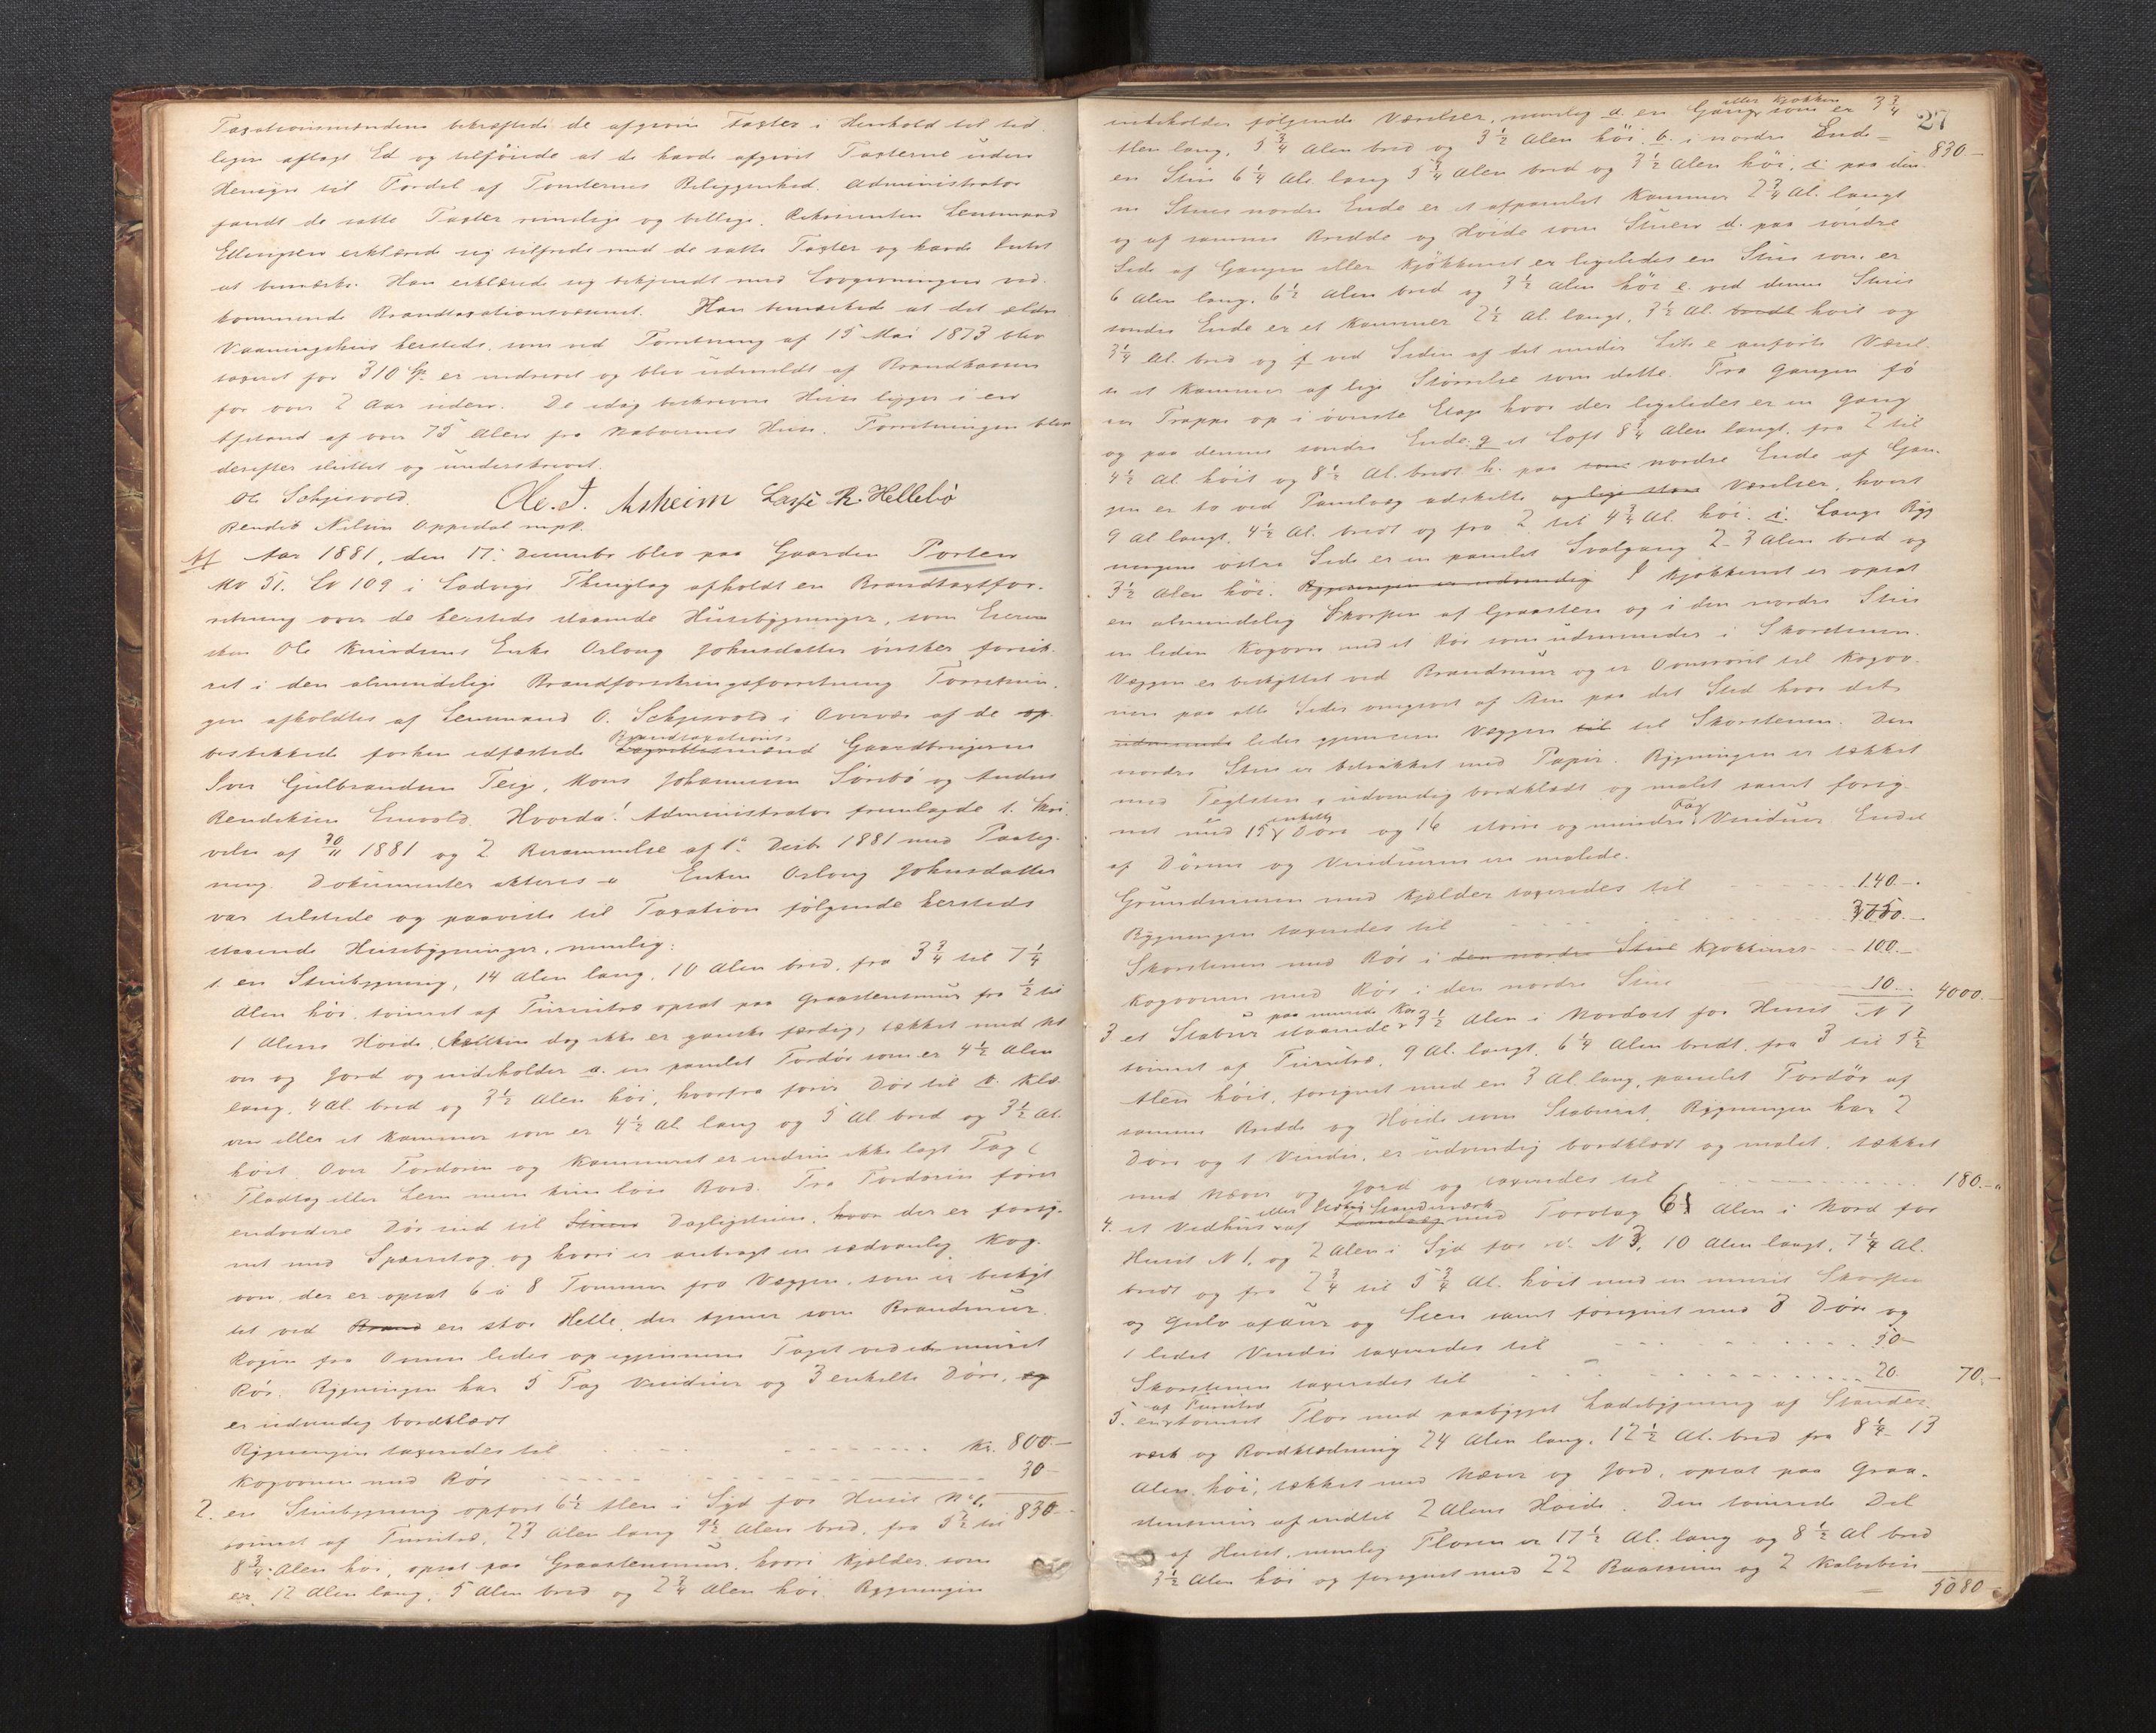 Taxationsmændene bekræftede de afgivne Taxter i Henhold til tid
ligere aflagt Ed og tilföiede at de havde afgivet Taxterne uden
Hensyn til Fordel af Tomternes Beliggenhed. Administrator
fandt de satte Taxter rimelige og billige. Rekvirenten Lensmand
Ellingsen erklærede sig tilfreds med de satte Taxter og havde Intet
at bemærke. Han erklærede sig bekjendt med Lovgivningen ved-
kommende Brandtaxationsvæsenet. Han bemærkede at det ældre
Vaaningshus hersteds, som ved Forretning af 15 Mai 1873 blev
taxeret for 310 Sp. er nedrevet og blev udmeldt af Brandkassen
for over 2 Aar siden. De idag beskrevne Huse ligger i en
Afstand af over 75 Alen fra Naboernes Huse. Forretningen blev
derefter sluttet og underskrevet.
Ol. Schjesvold. Ole. J. Asheim Lasse R. Hellebö
Bendik Nilsen Oppedal mpp.
Aar 1881, den 17. December blev paa Gaarden Porten
No 51. Lv 109 i Ladvigs Thinglag afholdt en Brandtaxtfor-
retning over de hersteds staaende Husebygninger, som Eieren
Ole Knudsens Enke Oslaug Johnsdatter önsker forsik-
ret i den almindelige Brandforsikringsforretning Forretnin-
gen afholdtes af Lensmand O. Schjesvold i Overvær af de op-
beskikkede forhen edfæstede Brandtaxations Lagrettesmænd Gaardbrugerne
Iver Gulbrandsen Teig, Mons Johannesen Sörebö og Anders
Bendiksen Hvorda! Administrator fremlagde 1. Skri-
velse af 30/11 1881 og 2 Berammelse af 1. Decbr 1881 med Paateg-
ning. Dokumenter akteres. Enken Oslaug Johnsdatter
var tilstede og paaviste til Taxation fölgende hersteds
staaende Husebygninger, nemlig:
1 en Stuebygning, 14 Alen lang, 10 Alen bred, fra 3 3/4 til 7 1/4
Alen höi, tömret af Furutræ opsat paa Graastensmur fra 1/2 til
1 Alens Höide, hvilken dog ikke er ganske færdig, tækket med Næ
ver og Jord og indeholder a. en panelet Fordör som er 4 1/2 Alen
lang, 4 Al. bred og 3 1/2 Alen höi, hvorfra förer Dör til b. Klæ-
ven eller et Kammer som er 4 1/2 Al. lang og 5 Al bred og 3 1/2 Al.
höit Over Fordören og Kammeret er endnu ikke lagt Tag (
Fladtag eller Lem men kun löse Bord. Fra Fordören förer
endvidere Dör ind til Stuen Dagligstuen, hvor der er forsy-
net med Sperretag og hvori er anbragt en sædvanlig Kog-
ovn, der er opsat 6 à 8 Tommer fra Væggen, som er beskyt
tet ved Brand en stor Helle, der tjener som Brandmur.
Rögen fra Ovnen ledes op igjennem Taget ved et muret
Rör. Bygningen har 5 Fag Vinduer og 3 enkelte Döre, og
er udvendig bordklædt
Bygningen taxeredes til Kr. 800.—
Kogovnen med Rör 30—
830—
2. en Stuebygning opfört 6 1/2 Alen i Syd for Huset No 1.
tömret af Furutræ, 23 Alen lang 9 1/2 Alen bred, fra 5 1/2 til
8 3/4 Alen höi, opsat paa Graastensmur, hvori Kjælder, som
er 12 Alen lang, 5 Alen bred og 2 3/4 Alen höi. Bygningen
27
indeholder fölgende Værelser, nemlig a en Gang eller Kjökken som er 3 3/4
Alen lang, 5 3/4 Alen bred og 3 1/2 Alen höi. b. i nordre Ende 830—
en Stue 6 1/4 Al. lang 5 3/4 Alen bred og 3 1/2 Alen höi, c. paa den-
ne Stues nordre Ende er et afpanelet Kammer 2 3/4 Al. langt
og af samme Bredde og Höide som Stuen d. paa söndre
Side af Gangen eller Kjökkenet er ligeledes en Stue som er
6 Alen lang, 6 1/2 Alen bred og 3 1/2 Alen höi e. ved denne Stues
söndre Ende er et Kammer 2 1/2 Al. langt, 3 1/2 Al. bredt höit og
3 1/4 Al. bred og f ved Siden af det under Litr e anförte Værel-
se et Kammer af lige Störrelse som dette. Fra Gangen gaar
en Trappe op i överste Etage hvor der ligeledes er en Gang
og paa dennes söndre Ende g et Loft 8 3/4 Alen langt, fra 2 til
4 1/2 Al höit og 8 1/2 Al. bredt h. paa nordre Ende af Gan-
gen er to ved Panelvæg adskilte og lige store Værelser, hvert
9 Al langt, 4 1/2 Al. bredt og fra 2 til 4 3/4 Al. höi. i. Langs Byg
ningens östre Side er en panelet Svalgang 2 3 Alen bred og
3 1/2 Alen höi. Bygningen er udvendig I Kjökkenet er opsat
en almindelig Skorsten af Graasten og i den nordre Stue
en liden Kogovn med et Rör som udmunder i Skorstenen.
Væggen er beskyttet ved Brandmur og er Ovnsröret til Kogov-
nen paa alle Sider omgivet af Sten paa det Sted hvor det
udmunder ledes gjennem Væggen til til Skorstenen. Den
nordre Stue er betrukket med Papir. Bygningen er tækket
med Teglsten, udvendig bordklædt og malet samt forsy-
net med 15 enkelte Döre og 16 större og mindre Fag Vinduer. Endel
af Dörene og Vinduerne er malede.
Grundmuren med Kjælder taxeredes til 140.—
Bygningen taxeredes til 3750.—
Skorstenen med Rör i den nordre Stue Kjökkenet 100.—
Kogovnen med Rör i den nordre Stue 10.— 4000.—
3 et Stabur paa murede Kar staaende 3 1/2 Alen i Nordost for Huset No 1
tömret af Furutræ, 9 Al. langt, 6 1/4 Alen bredt, fra 3 til 5 1/2
Alen höit, forsynet med en 3 Al. lang, panelet Fordör af
samme Bredde og Höide som Staburet. Bygningen har 2
Döre og 1 Vindu, er udvendig bordklædt og malet, tækket
med Næver og Jord og taxeredes til 180.—
4. et Vedhus af Standerværk med Torvtag 6 Alen i Nord for
Huset No 1, og 2 Alen i Syd for No 3, 10 Alen langt, 7 1/4 Al.
bredt og fra 2 3/4 til 5 3/4 Al. höit med en muret Skorsten
og Gulv af Aur og Sten samt forsynet med 3 Döre og
1 lidet Vindu taxeredes til 50—
Skorstenen taxeredes til 20. 70.—
5. en af Furutræ tömret Flor med paabygget Ladebygning af Stander-
værk og Bordklædning 24 Alen lang, 12 1/2 Al. bred fra 8 1/4 13
Alen höi, tækket med Næver og Jord, opsat paa Graa-
stensmur af indtil 2 Alens Höide. Den tömrede Del
af Huset, nemlig Floren er 17 1/2 Al. lang og 8 1/2 Al bred
3 1/2 Alen höi og forsynet med 22 Baasrum og 2 Kalvebin
5080